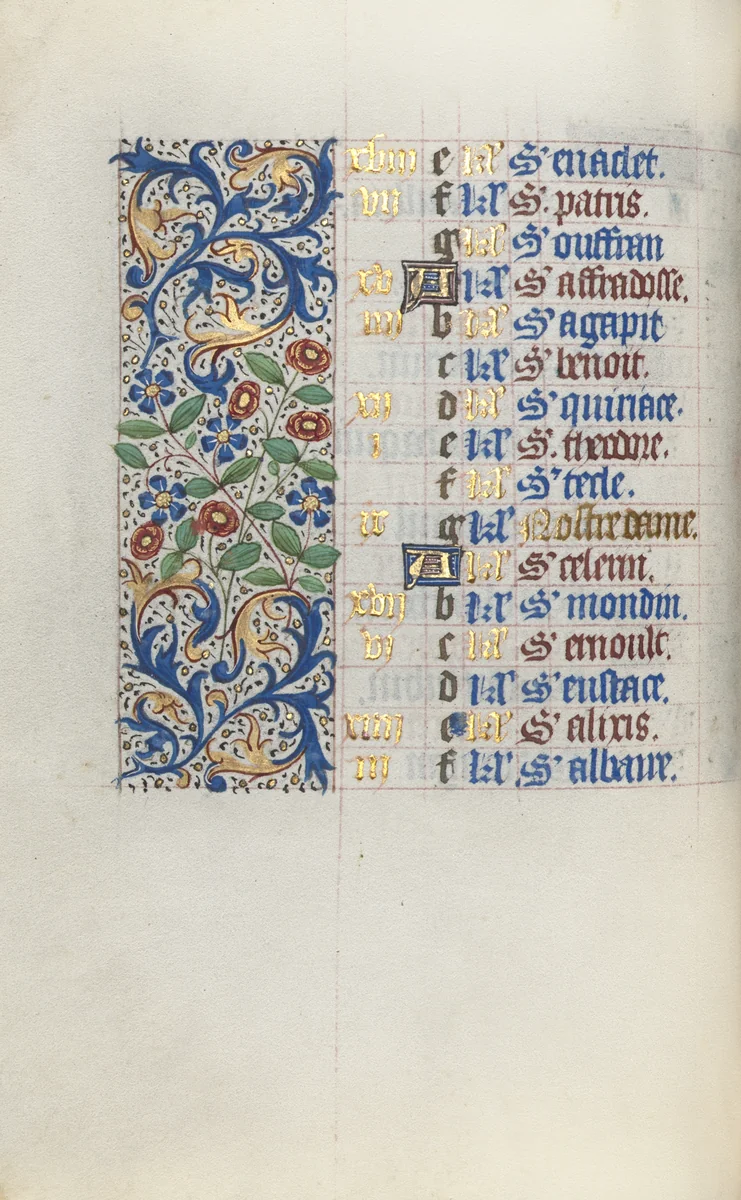 xviii e kl' S' enaclet.
vii f kl' S. patris.
g kl' S' ouffran
xv A kl' S' affradosse.
iiii b kl' S' agapit
c kl' S' benoit.
xii d kl' S' quiriace.
i e kl' S. theodore.
f kl' S' tecle.
ix g kl' Nostre dame.
A kl' S' celerin.
xvii b kl' S' mondin.
vi c kl' S' ernoult.
d kl' S' eustace.
xiiii e kl' S' alixis.
iii f kl' S' albane.